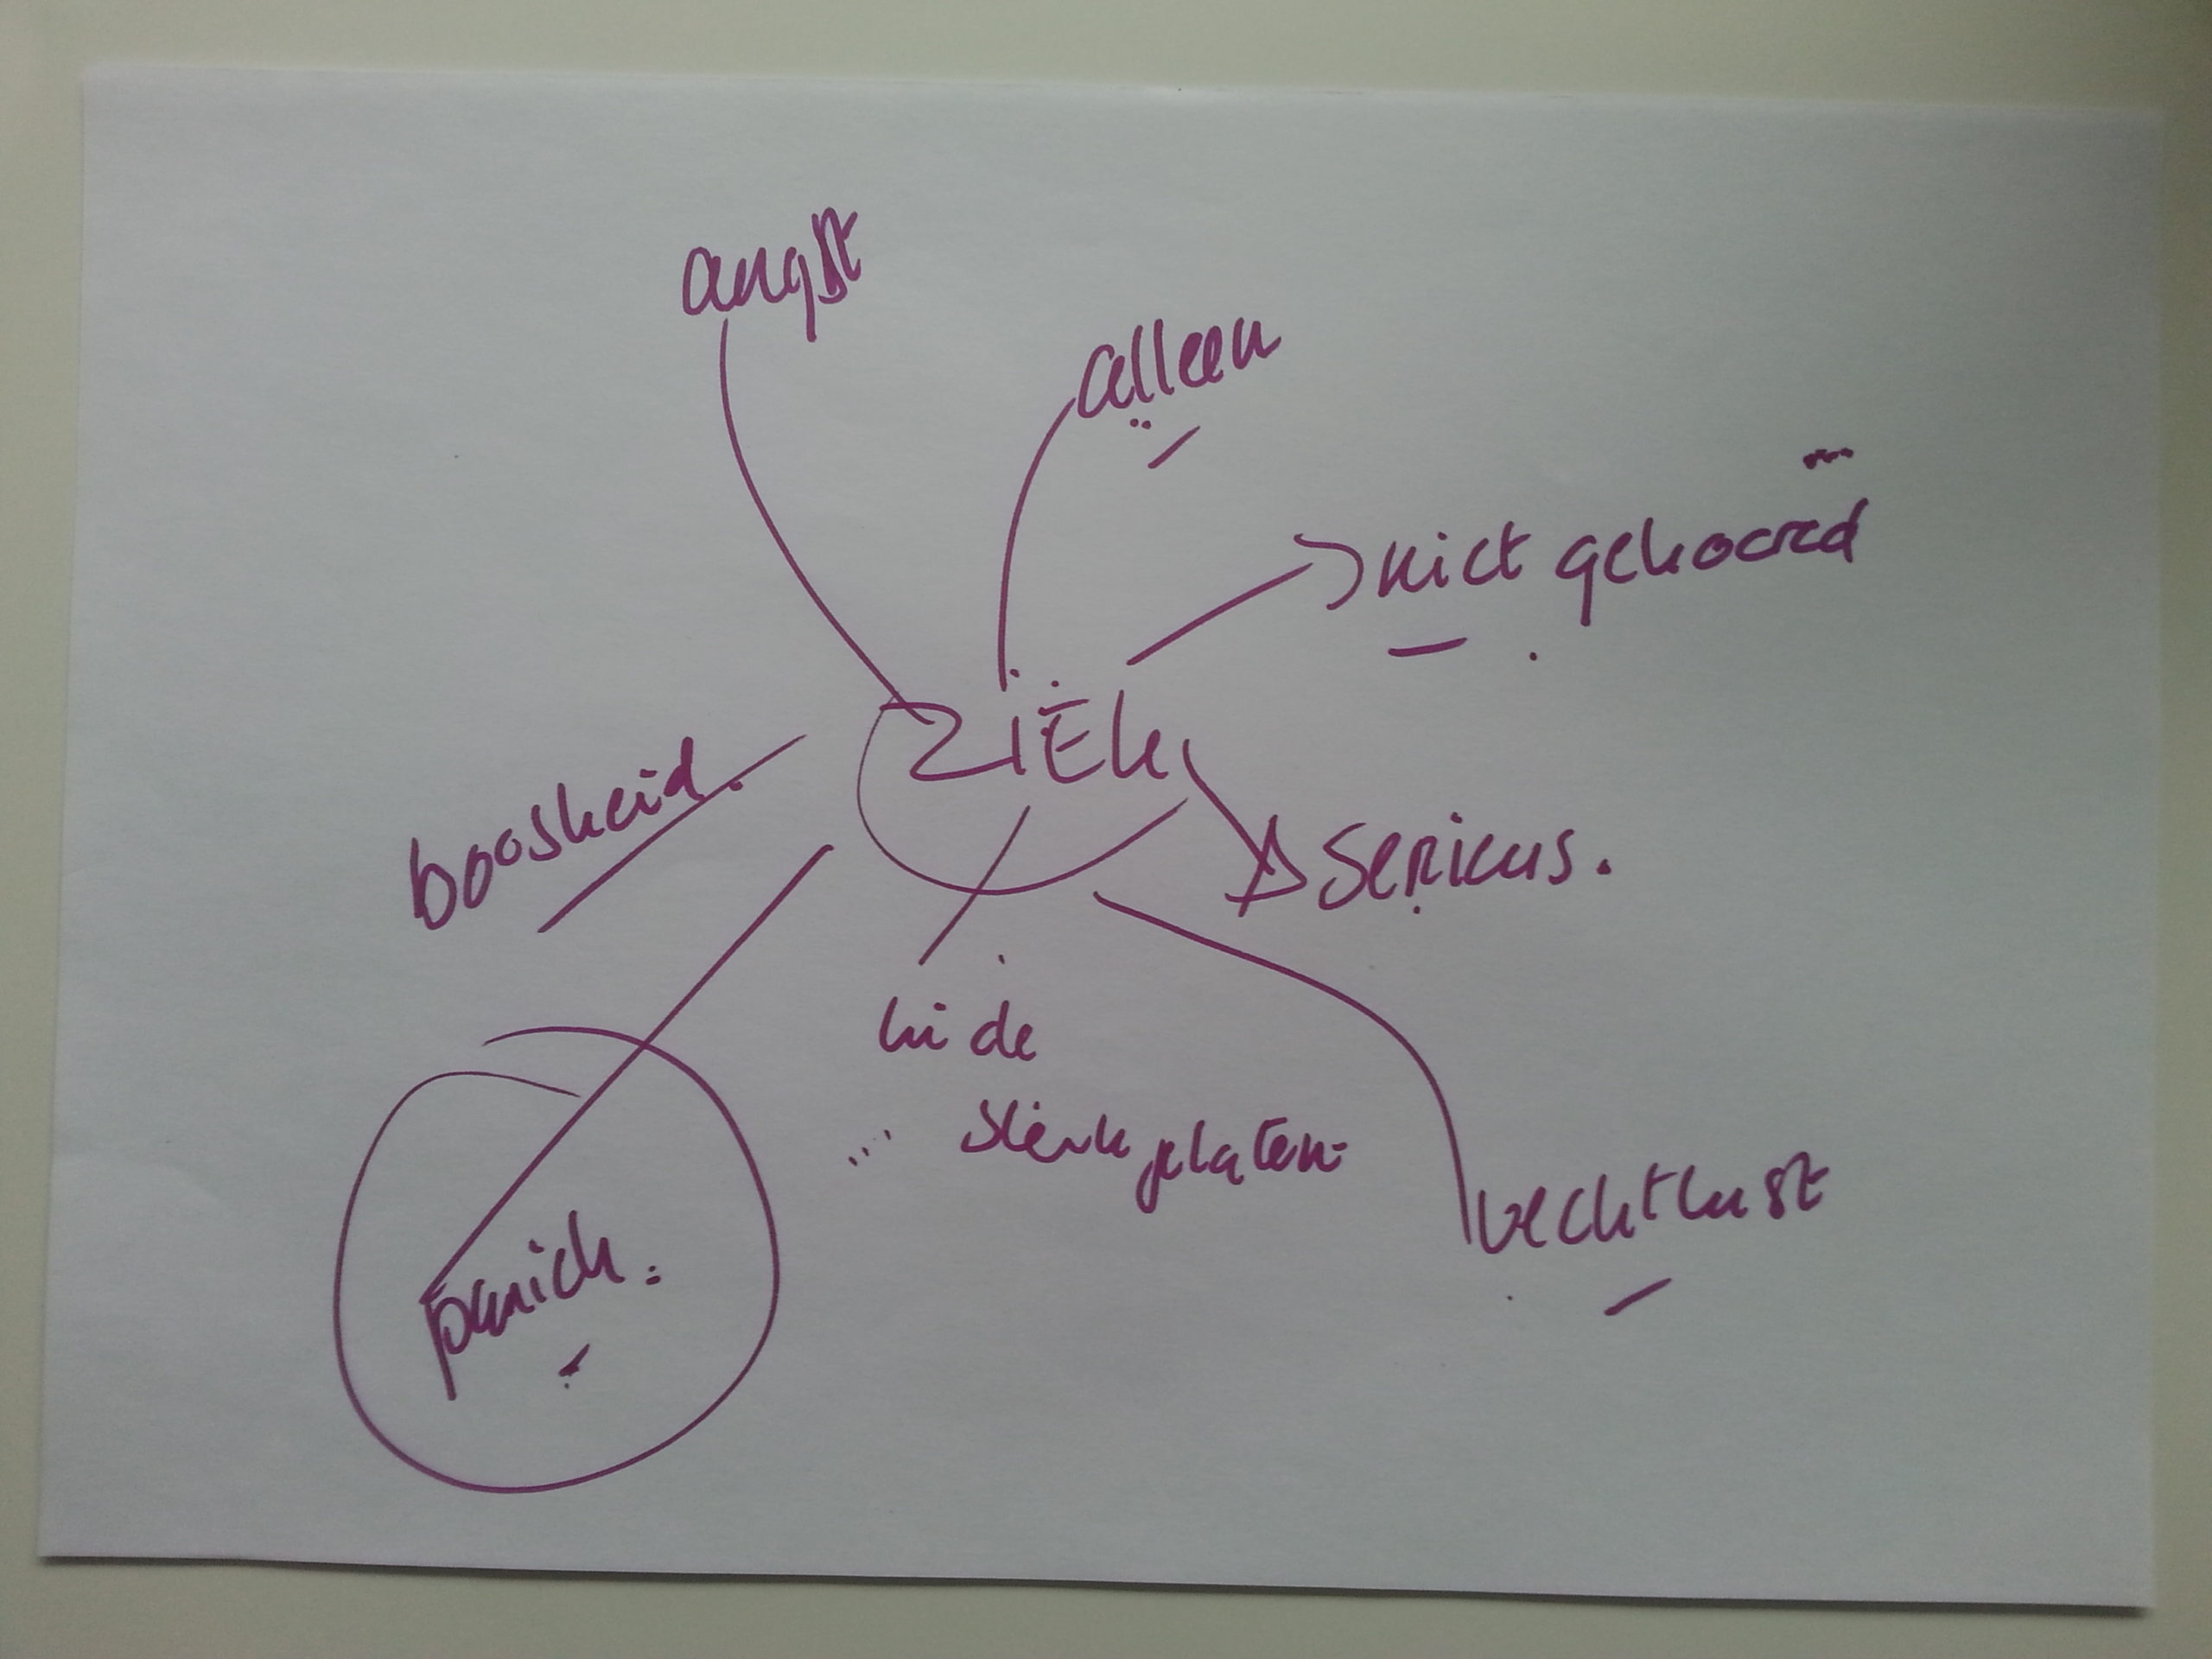 angst
alleen
niet gehoord
ZIEk
boosheid.
serieus.
in de
steek gelaten
vechtlust
panick.